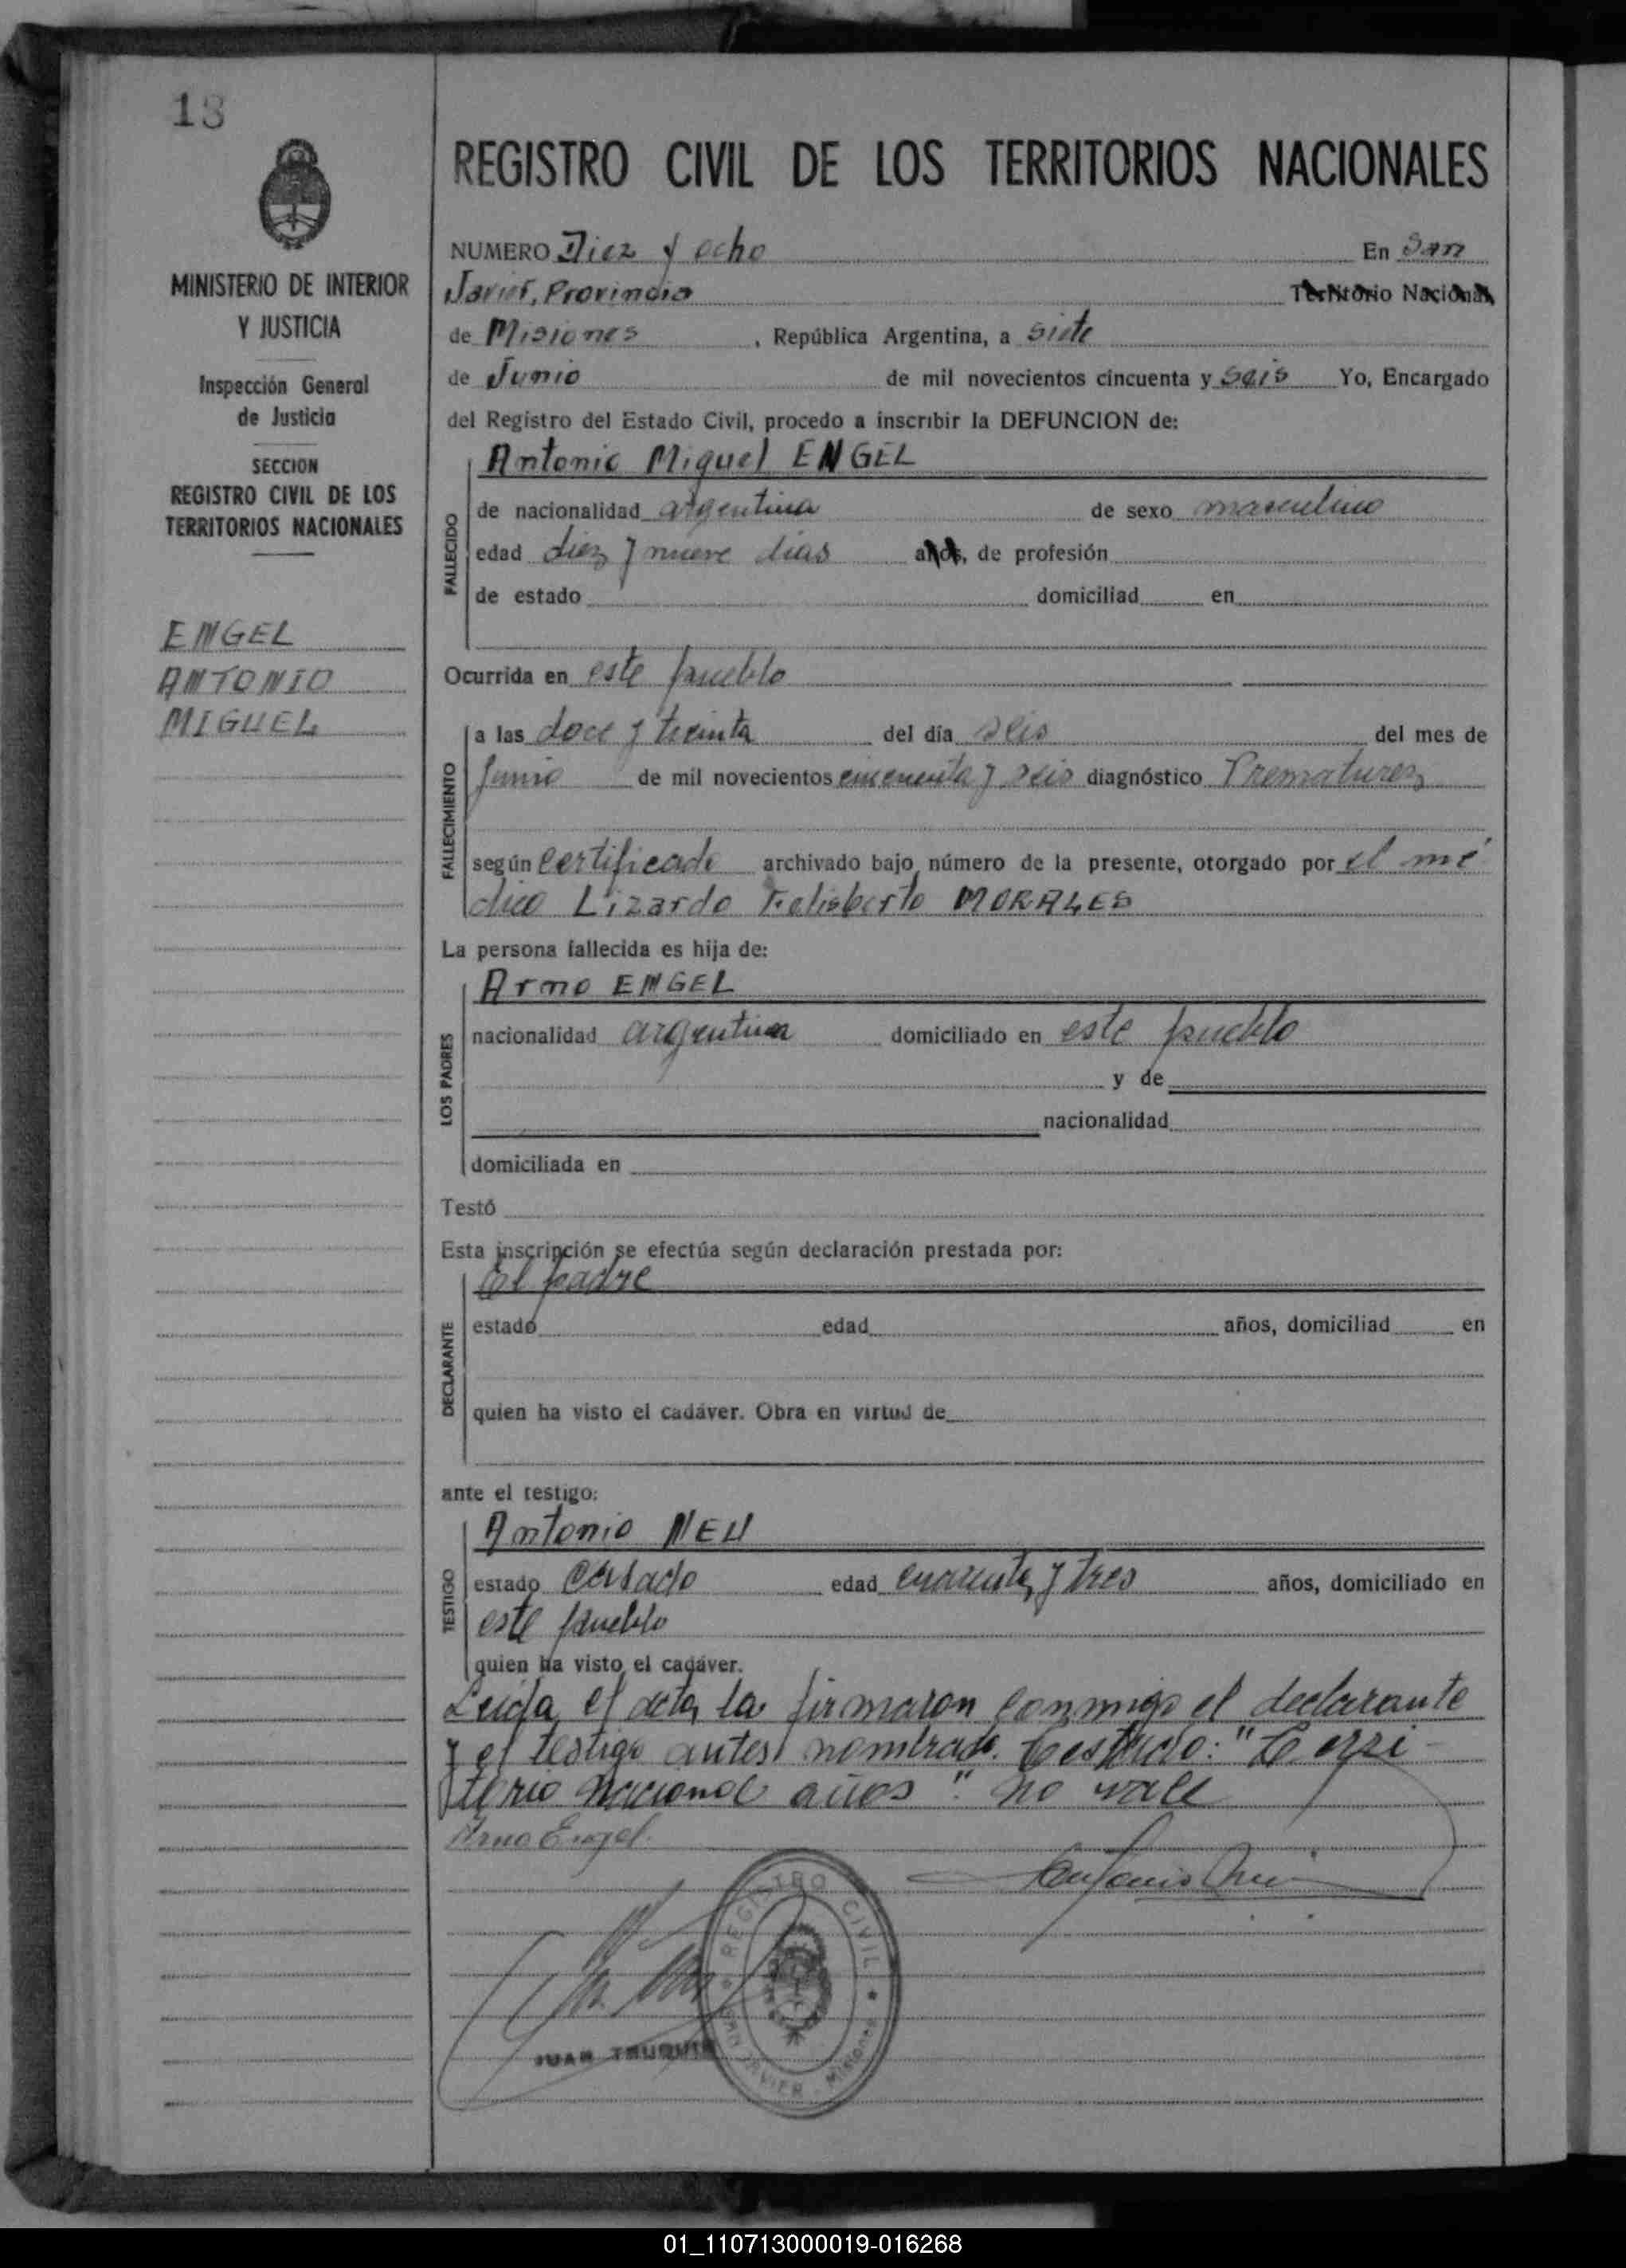 18
MINISTERIO DE INTERIOR
Y JUSTICIA
Inspección General
de Justicia
SECCION
REGISTRO CIVIL DE LOS
TERRITORIOS NACIONALES
ENGEL
ANTONIO
MIGUEL
REGISTRO CIVIL DE LOS TERRITORIOS NACIONALES
NUMERO Diez y ocho En San
Javier, Provincia Territorio Nacional
de Misiones, República Argentina, a siete
de Junio de mil novecientos cincuenta y seis Yo, Encargado
del Registro del Estado Civil, procedo a inscribir la DEFUNCION de:
Antonio Miguel ENGEL
FALLECIDO
de nacionalidad argentina de sexo masculino
edad diez y nueve dias años, de profesión
de estado domiciliad en
Ocurrida en este pueblo
FALLECIMIENTO
a las doce y treinta del día seis del mes de
Junio de mil novecientos cincuenta y seis diagnóstico Prematurez
según Certificado archivado bajo número de la presente, otorgado por el mé
dico Lizardo Felisberto MORALES
La persona fallecida es hija de:
LOS PADRES
Arno ENGEL
nacionalidad argentina domiciliado en este pueblo
y de
nacionalidad
domiciliada en
Testó
Esta inscripción se efectúa según declaración prestada por:
DECLARANTE
El padre
estado edad años, domiciliad en
quien ha visto el cadáver. Obra en virtud de
ante el testigo:
TESTIGO
Antonio NEU
estado casado edad cuarenta y tres años, domiciliado en
este pueblo
quien ha visto el cadáver.
Leida el acta, la firmaron conmigo el declarante
y el testigo antes nombrado. Testado: "Terri-
torio Nacional años". no vale
Arno Engel.
Antonio
REGISTRO CIVIL
SAN JAVIER - Misiones
JUAN
01_110713000019-016268